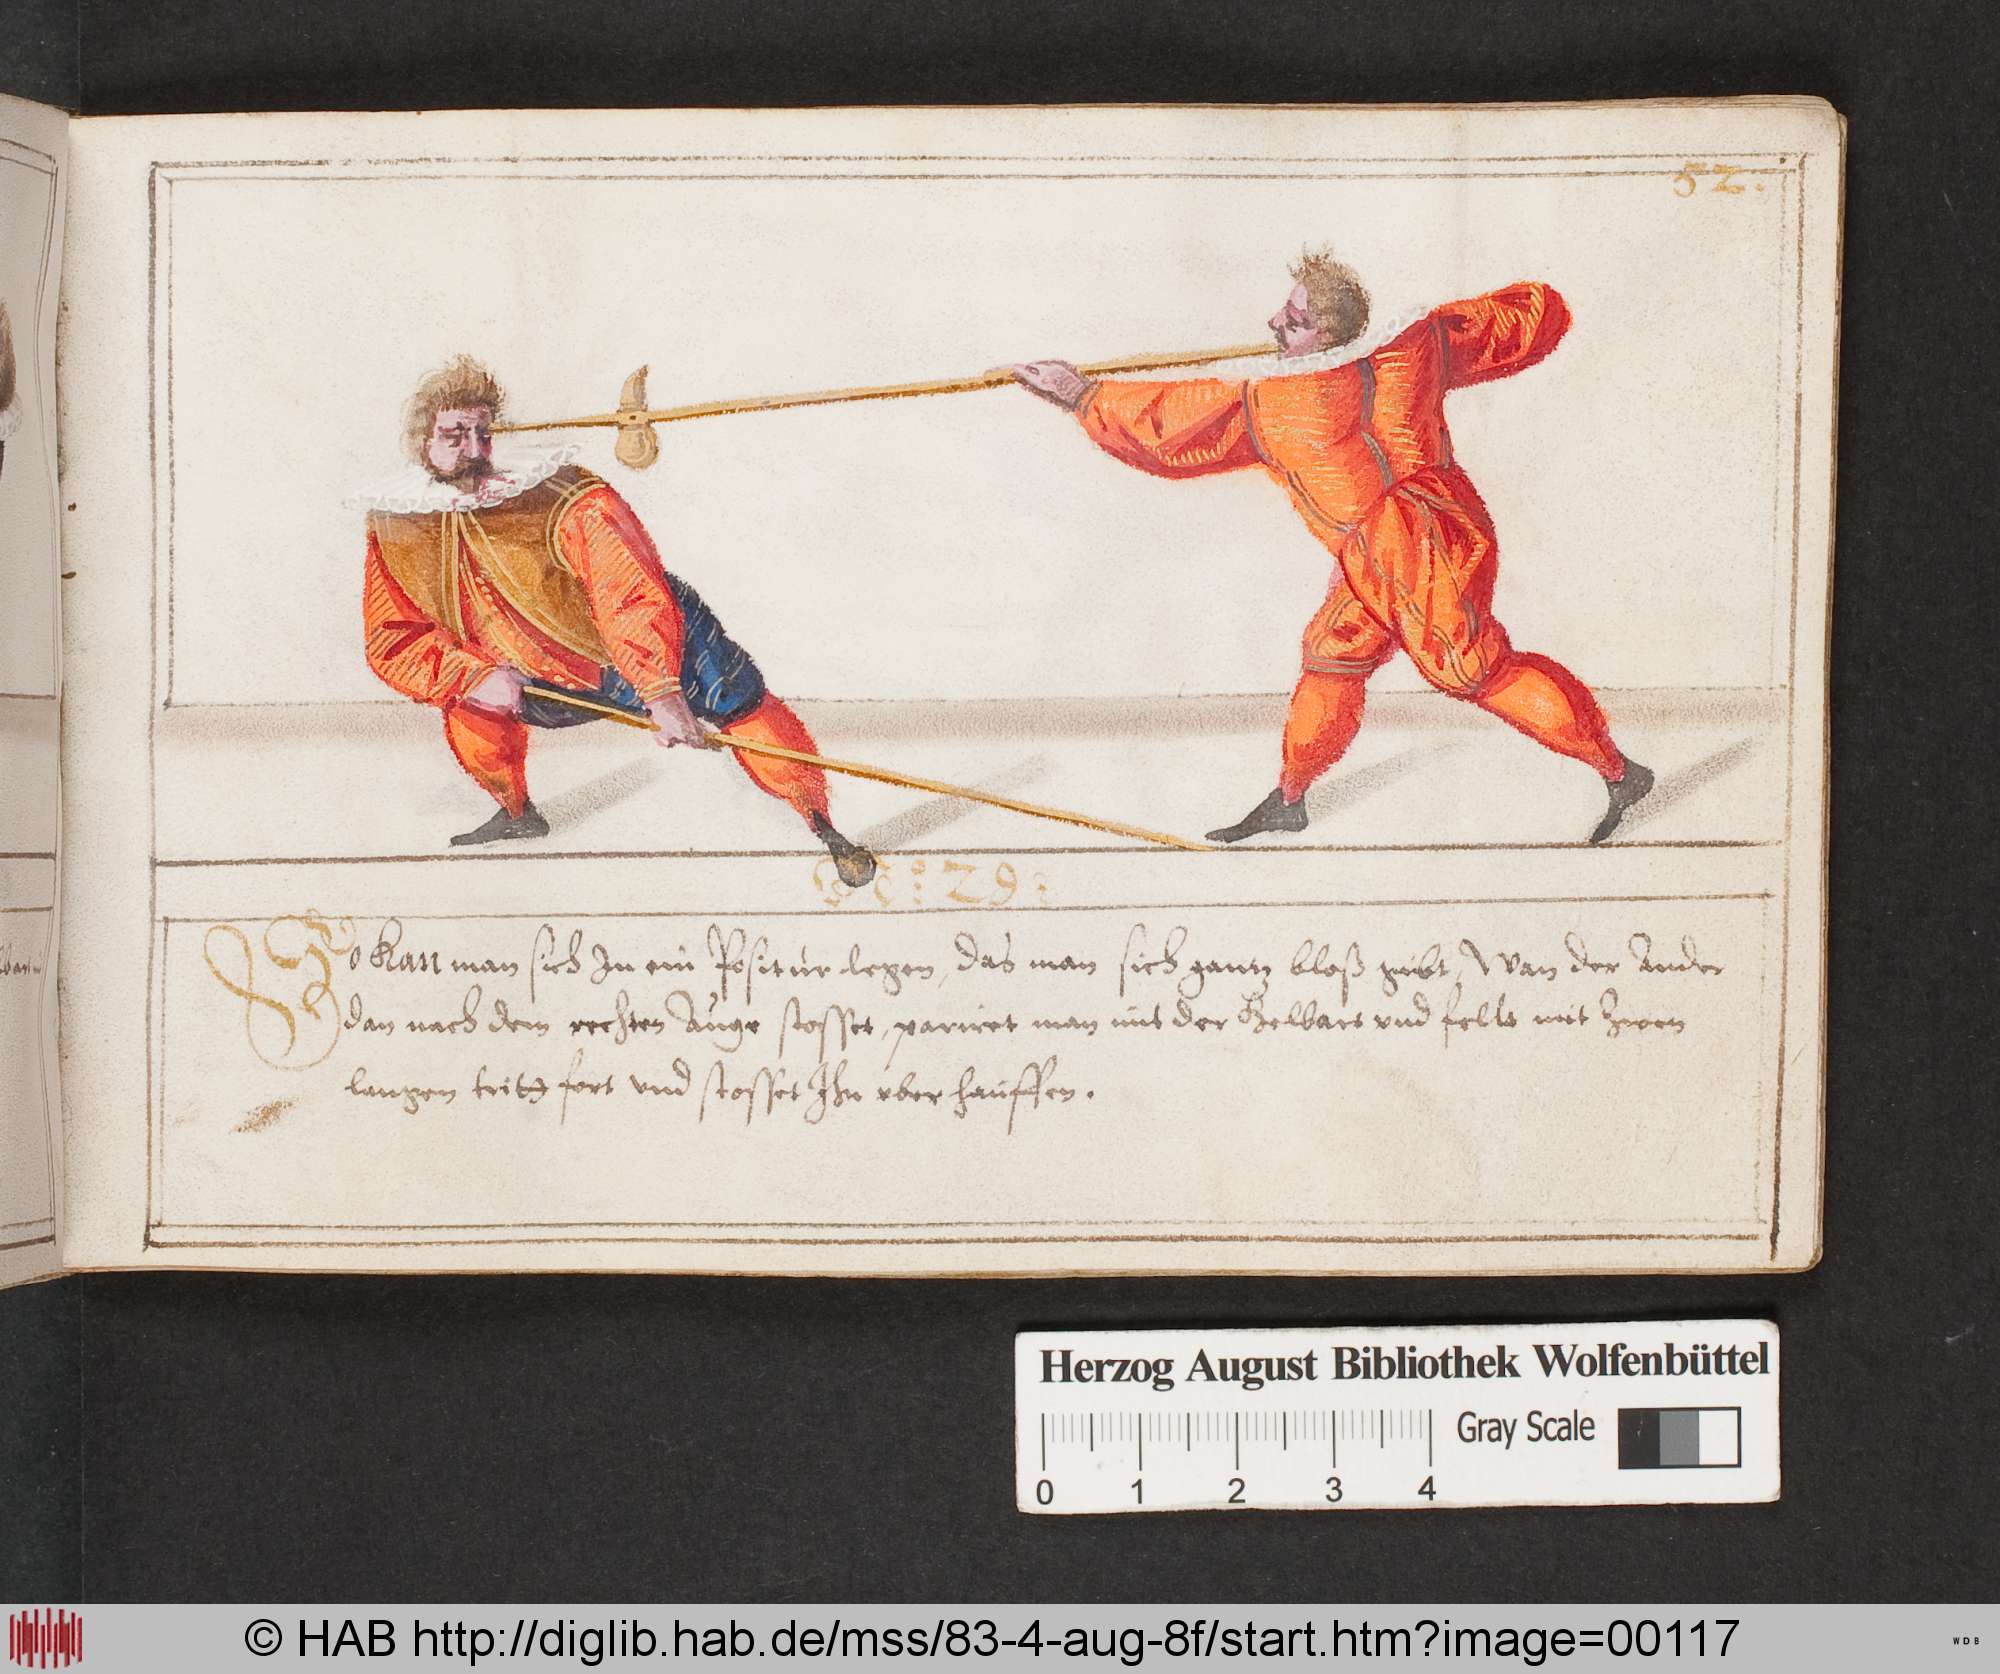 52.
No: 29:
So kan man sich In ein Positur legen, das man sich gantz bloß gibt, Wan der Ander
dan nach dem rechten Auge stosset, pariret man mit der Helbart vnd felt mit Zwen
langen tritt fort vnd stosset Ihn vber hauffen.
Herzog August Bibliothek Wolfenbüttel
Gray Scale
0 1 2 3 4
© HAB http://diglib.hab.de/mss/83-4-aug-8f/start.htm?image=00117
W D B